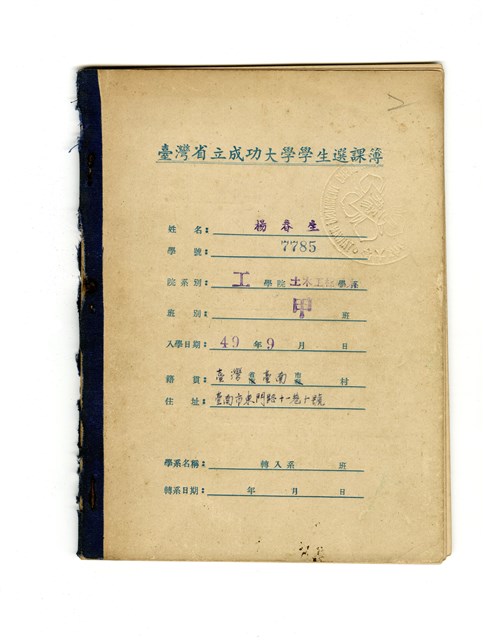 臺灣省立成功大學學生選課簿
姓 名: 楊春生
學 號: 7785
院系別: 工 學院 土木工程 學系
班 別: 甲 班
入學日期: 49 年 9 月 日
籍 貫: 臺灣 省 臺南 市 村
住 址: 臺南市東門路十一巷十號
學系名稱: 轉入系 班
轉系日期: 年 月 日